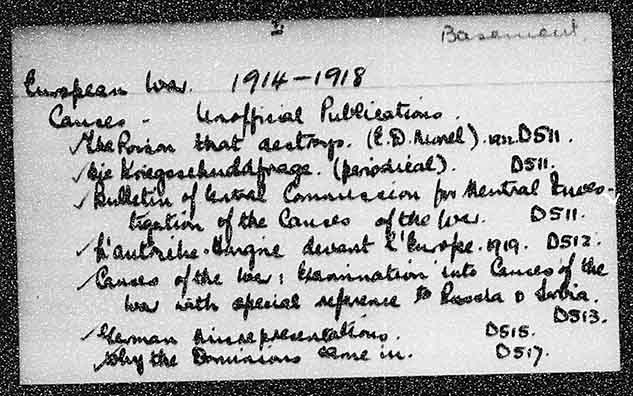 Basement.
European War. 1914-1918
Causes - Unofficial Publications.
The Poison that destroys. (E.D. Morel). 1922. D511.
Die Kriegsschuldfrage. (periodical). D511.
Bulletin of Central Commission for Neutral Inves-
tigation of the Causes of the War. D511.
L'autriche-Hongrie devant l'Europe. 1919. D512.
Causes of the War: Examination into Causes of the
War with special reference to Russia & Serbia.
D513.
German misrepresentations. D515.
Why the Dominions came in. D517.